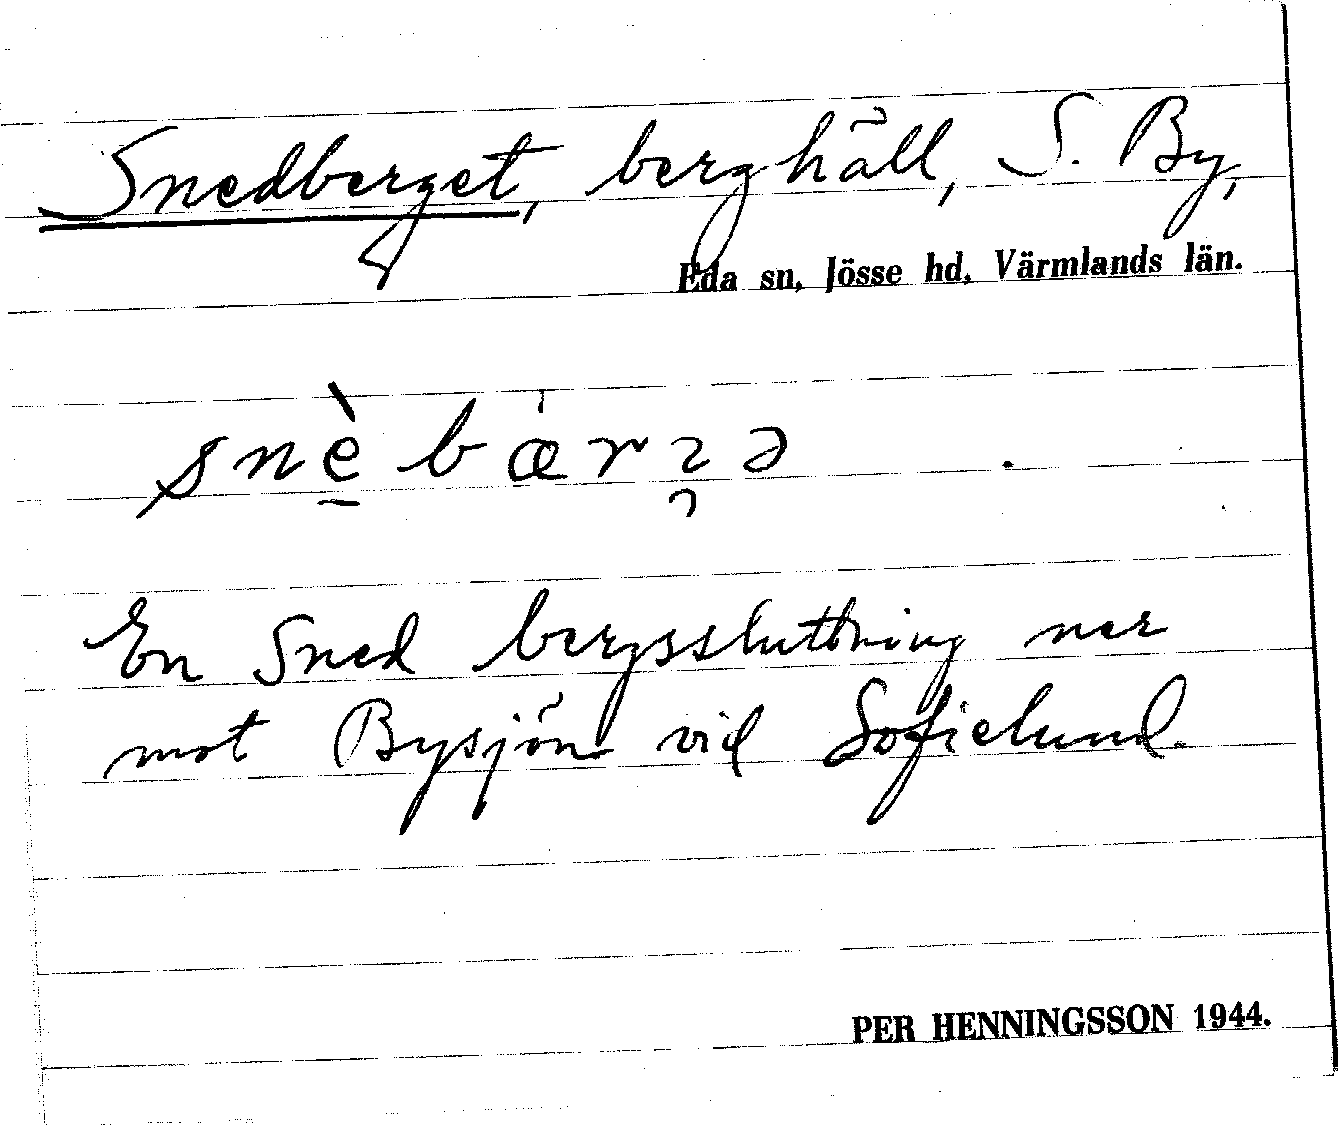 Snedberget, berghäll, S. By,
Eda sn, Jösse hd, Värmlands län.
snè̱bœ́rʒə
En Sned bergssluttning ner
mot Bysjön vid Sofielund.
PER HENNINGSSON 1944.